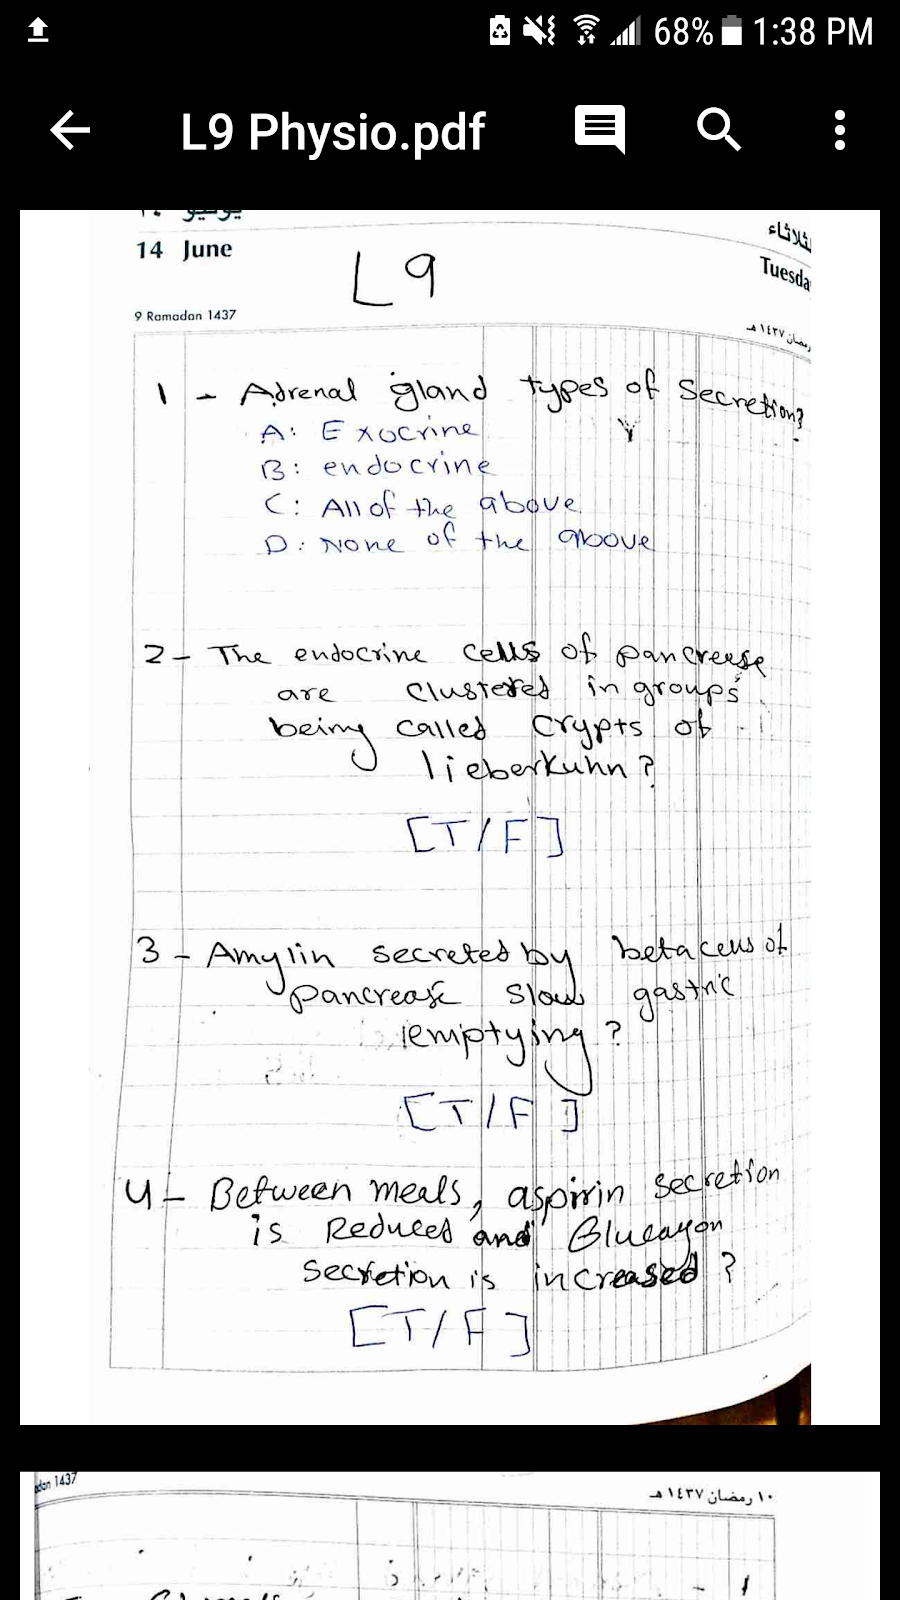 68% 1:38 PM
L9 Physio.pdf
يونيو
14 June
الثلاثاء
L9
Tuesda
9 Ramadan 1437
رمضان ١٤٣٧ هـ
1 - Adrenal gland types of Secretion?
A: Exocrine
B: endocrine
C: All of the above
D: None of the above
2 - The endocrine cells of pancrease
are clustered in groups
being called Crypts of
lieberkuhn?
[T/F]
3 - Amylin secreted by beta cells of
pancrease slow gastric
emptying?
[T/F]
4 - Between meals, aspirin secretion
is Reduced and Glucagon
secretion is increased?
[T/F]
adan 1437
١٠ رمضان ١٤٣٧ هـ